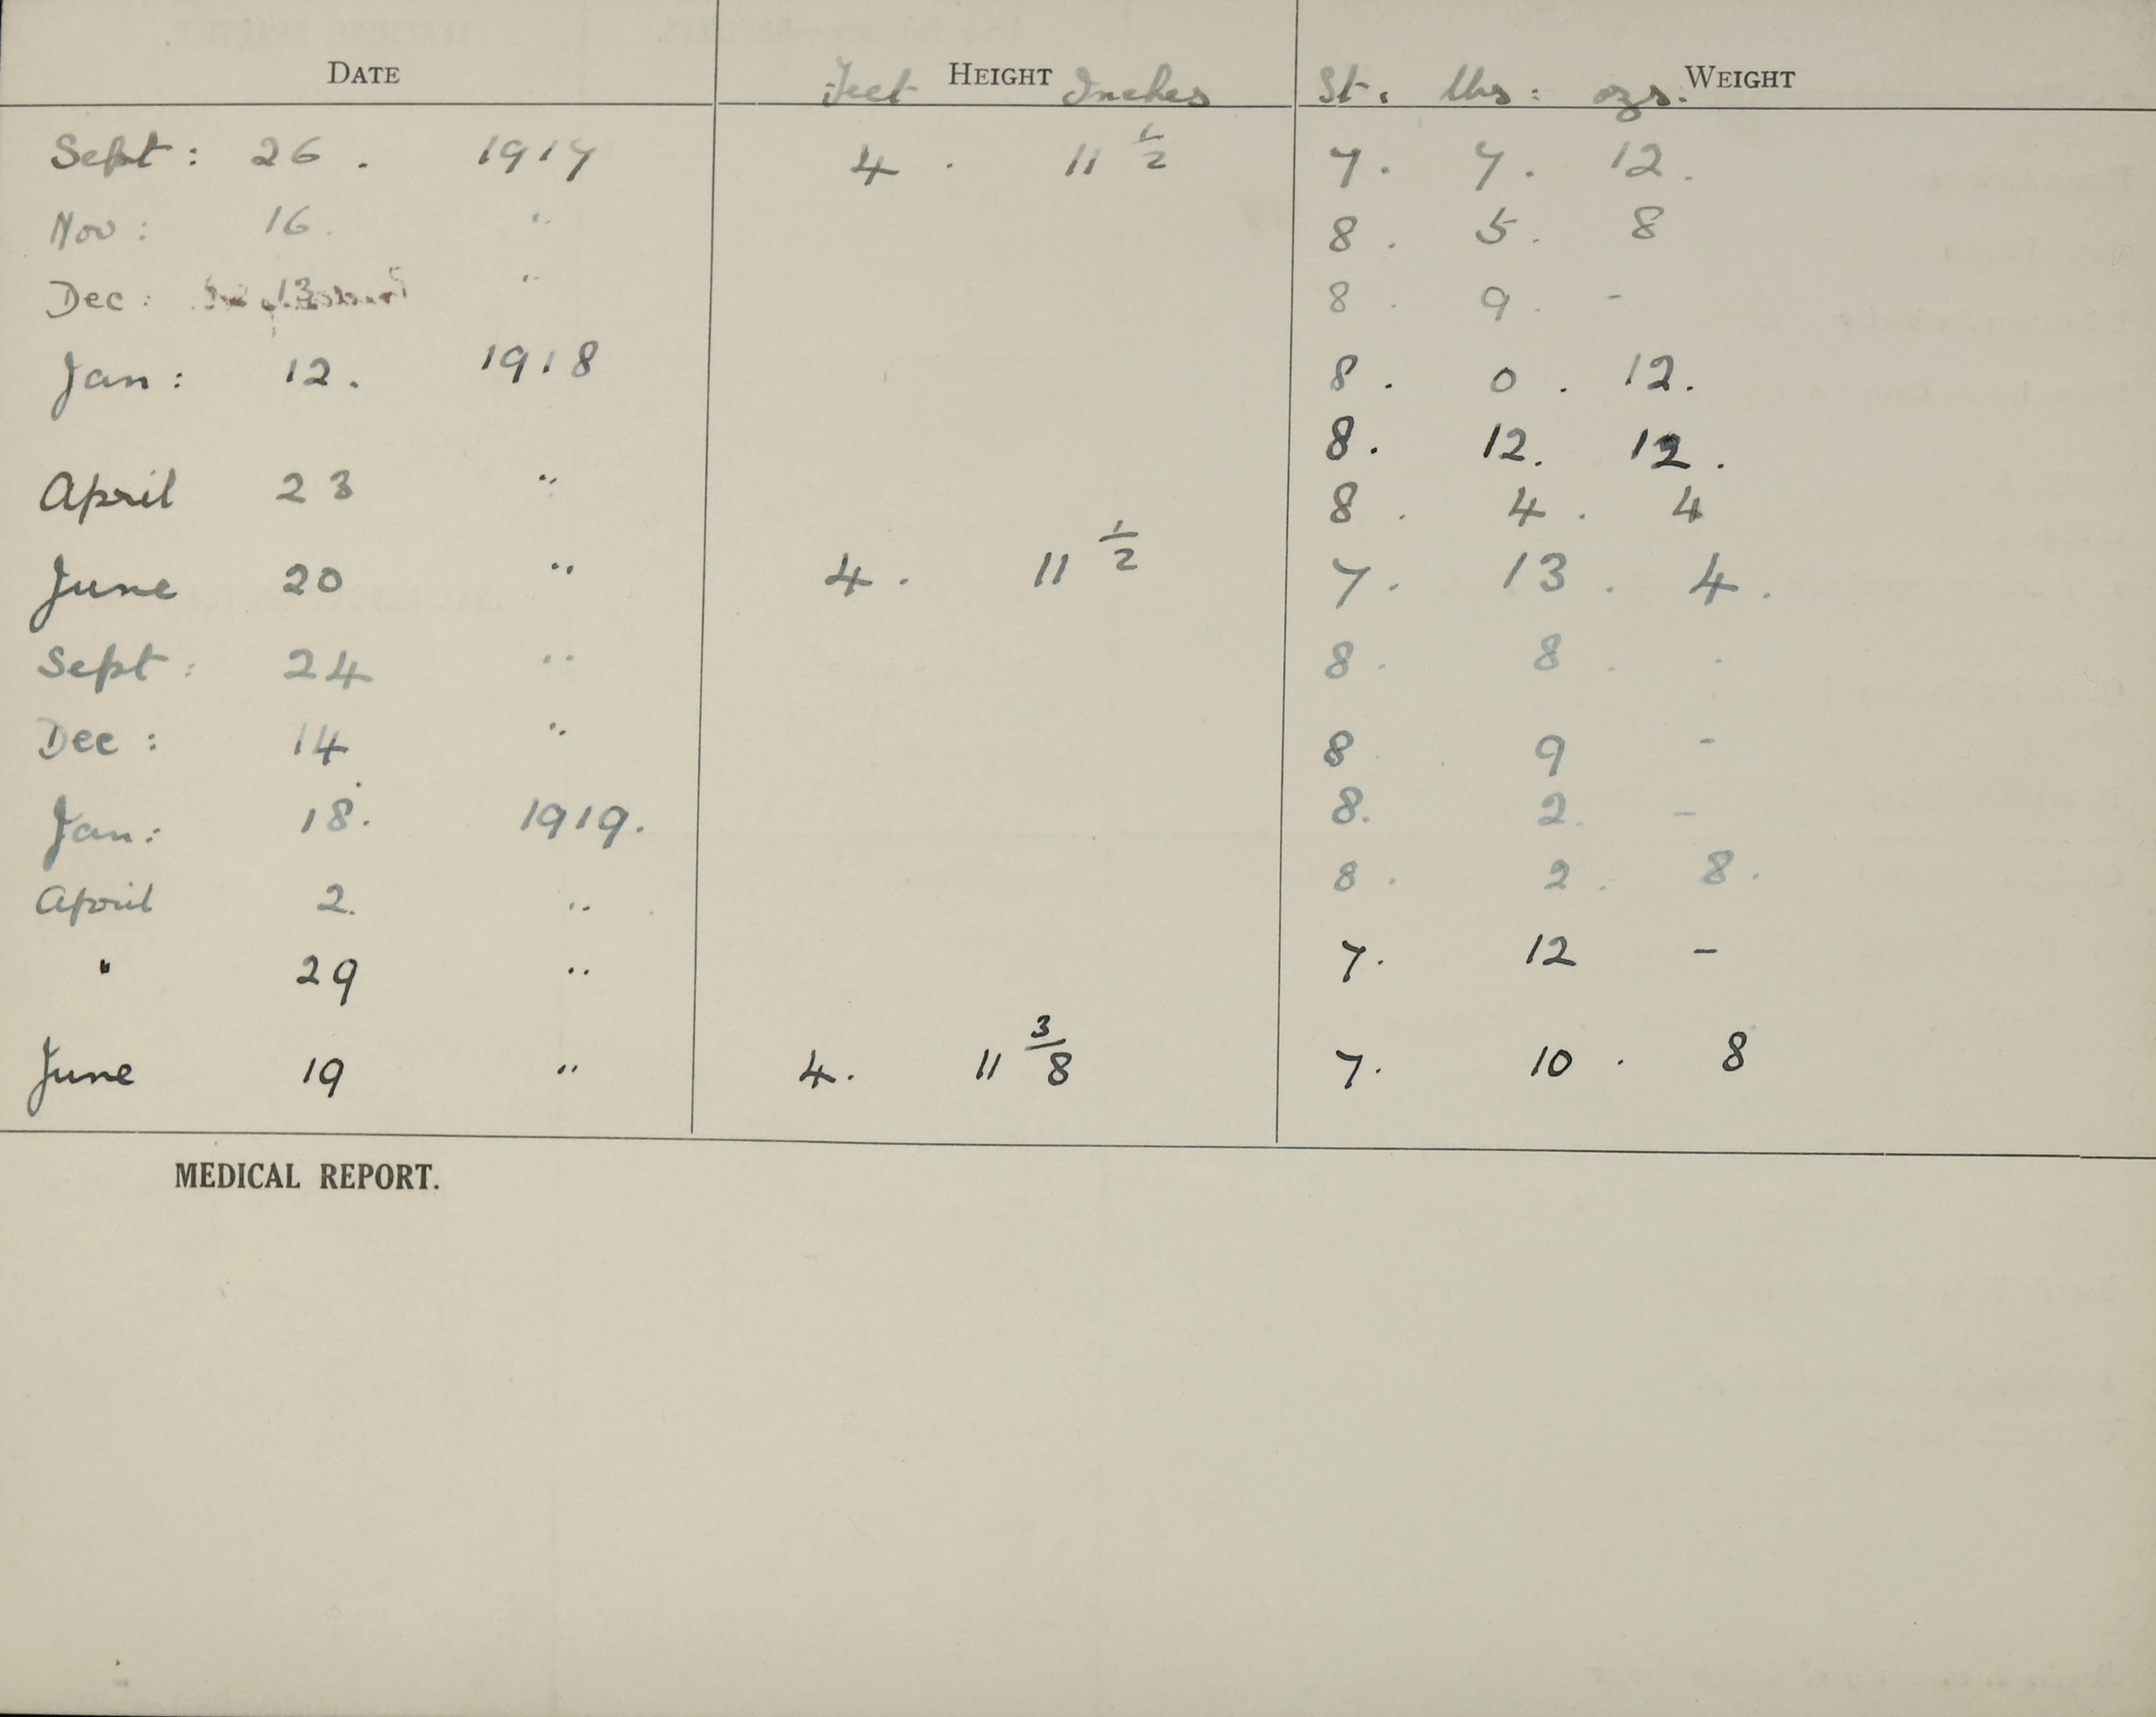 DATE Feet HEIGHT Inches St. lbs: ozs. WEIGHT
Sept: 26. 1917 4. 11 1/2 7. 7. 12.
Nov: 16. " 8. 5. 8
Dec: 13 " 8. 9. -
Jan: 12. 1918 8. 0. 12.
8. 12. 12.
April 23 " 8. 4. 4
June 20 " 4. 11 1/2 7. 13. 4.
Sept: 24 " 8. 8. .
Dec: 14 " 8 9 -
Jan: 18. 1919. 8. 2. -
April 2. " 8. 2. 8.
" 29 " 7. 12 -
June 19 " 4. 11 3/8 7. 10. 8
MEDICAL REPORT.